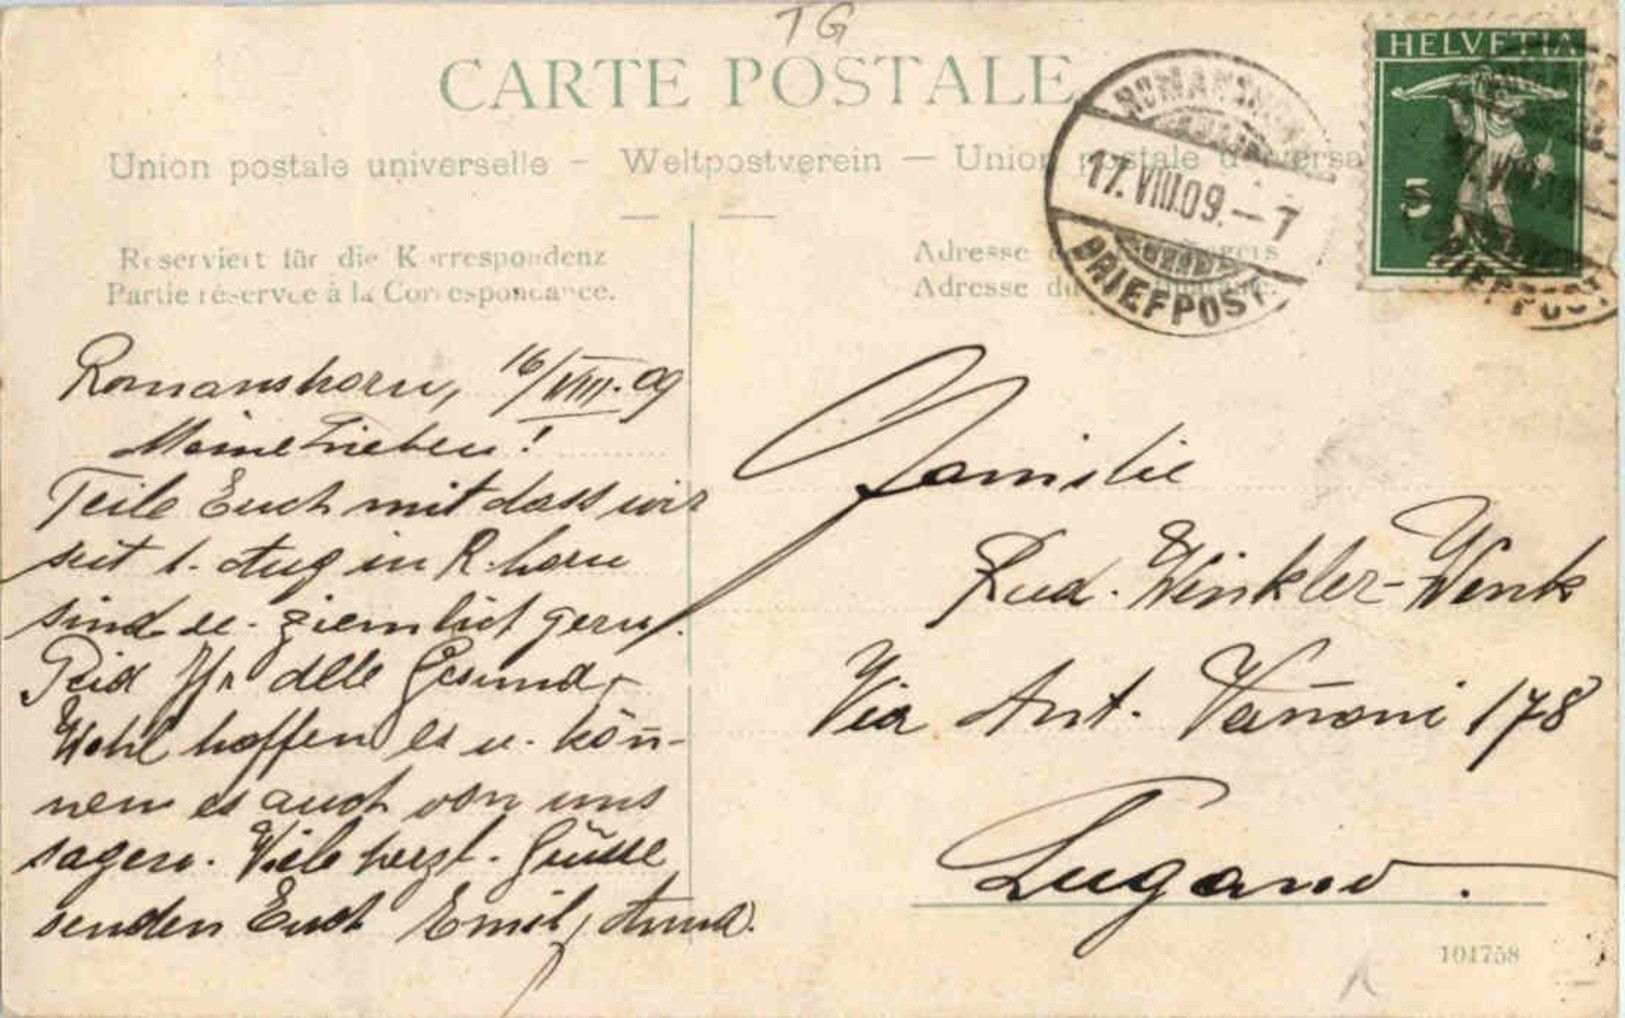 TG
CARTE POSTALE
Union postale universelle – Weltpostverein — Union postale universa
Reserviert für die Korrespondenz
Partie réservée à la Correspondance.
Adresse
Adresse du
ROMANSHORN
17.VIII.09.–7
BRIEFPOST
HELVETIA
5
BRIEFPOST
Romanshorn, 16/VIII.09
Meine Lieben!
Teile Euch mit dass wir
seit 1. Aug in R.horn
sind u. ziemlich gern.
Seid Ihr alle Gesund,
Wohl hoffen es u. kön̄-
nen es auch von uns
sagen. Viele herzl. Grüsse
senden Euch Emil, Anna.
Familie
Rud. Winkler-Wenk
Via Ant. Van̄oni 178
Lugano.
101758